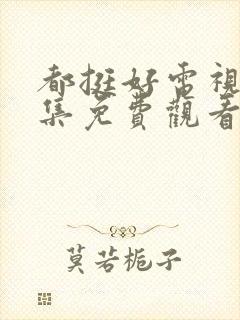 都挺好電視
集免費觀看
莫若栀子